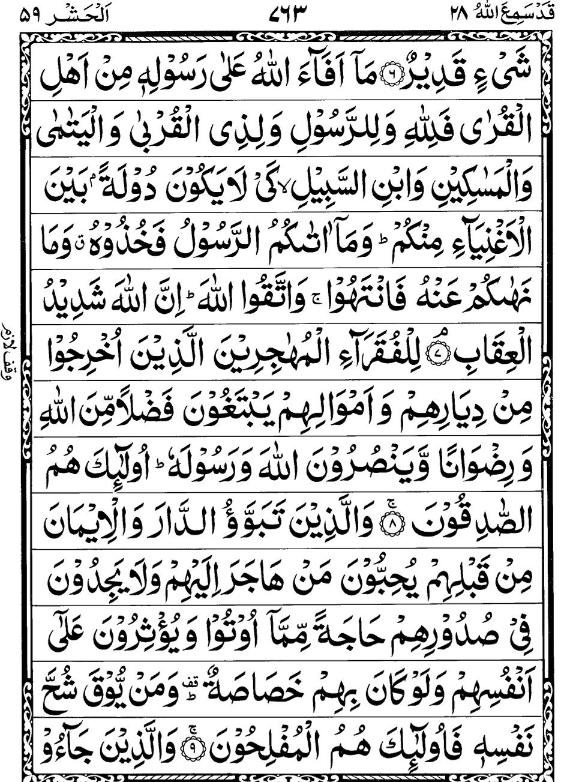 قَدْ سَمِعَ اللّٰهُ ٢٨ ٧٦٣ اَلْحَشْر ٥٩
شَیْءٍ قَدِیْرٌ ﴿٦﴾ مَاۤ اَفَآءَ اللّٰهُ عَلٰی رَسُوْلِهٖ مِنْ اَهْلِ
الْقُرٰی فَلِلّٰهِ وَ لِلرَّسُوْلِ وَ لِذِی الْقُرْبٰی وَ الْیَتٰمٰی
وَ الْمَسٰكِیْنِ وَ ابْنِ السَّبِیْلِ ۙ كَیْ لَا یَكُوْنَ دُوْلَةًۢ بَیْنَ
الْاَغْنِیَآءِ مِنْكُمْ ؕ وَ مَاۤ اٰتٰىكُمُ الرَّسُوْلُ فَخُذُوْهُ ۗ وَ مَا
نَهٰىكُمْ عَنْهُ فَانْتَهُوْا ۚ وَ اتَّقُوا اللّٰهَ ؕ اِنَّ اللّٰهَ شَدِیْدُ
الْعِقَابِ ۘ﴿٧﴾ لِلْفُقَرَآءِ الْمُهٰجِرِیْنَ الَّذِیْنَ اُخْرِجُوْا
وقف لازم
مِنْ دِیَارِهِمْ وَ اَمْوَالِهِمْ یَبْتَغُوْنَ فَضْلًا مِّنَ اللّٰهِ
وَ رِضْوَانًا وَّ یَنْصُرُوْنَ اللّٰهَ وَ رَسُوْلَهٗ ؕ اُولٰٓىِٕكَ هُمُ
الصّٰدِقُوْنَ ۚ﴿٨﴾ وَ الَّذِیْنَ تَبَوَّؤُ الدَّارَ وَ الْاِیْمَانَ
مِنْ قَبْلِهِمْ یُحِبُّوْنَ مَنْ هَاجَرَ اِلَیْهِمْ وَ لَا یَجِدُوْنَ
فِیْ صُدُوْرِهِمْ حَاجَةً مِّمَّاۤ اُوْتُوْا وَ یُؤْثِرُوْنَ عَلٰۤی
اَنْفُسِهِمْ وَ لَوْ كَانَ بِهِمْ خَصَاصَةٌ ؕ۫ وَ مَنْ یُّوْقَ شُحَّ
نَفْسِهٖ فَاُولٰٓىِٕكَ هُمُ الْمُفْلِحُوْنَ ۚ﴿٩﴾ وَ الَّذِیْنَ جَآءُوْ